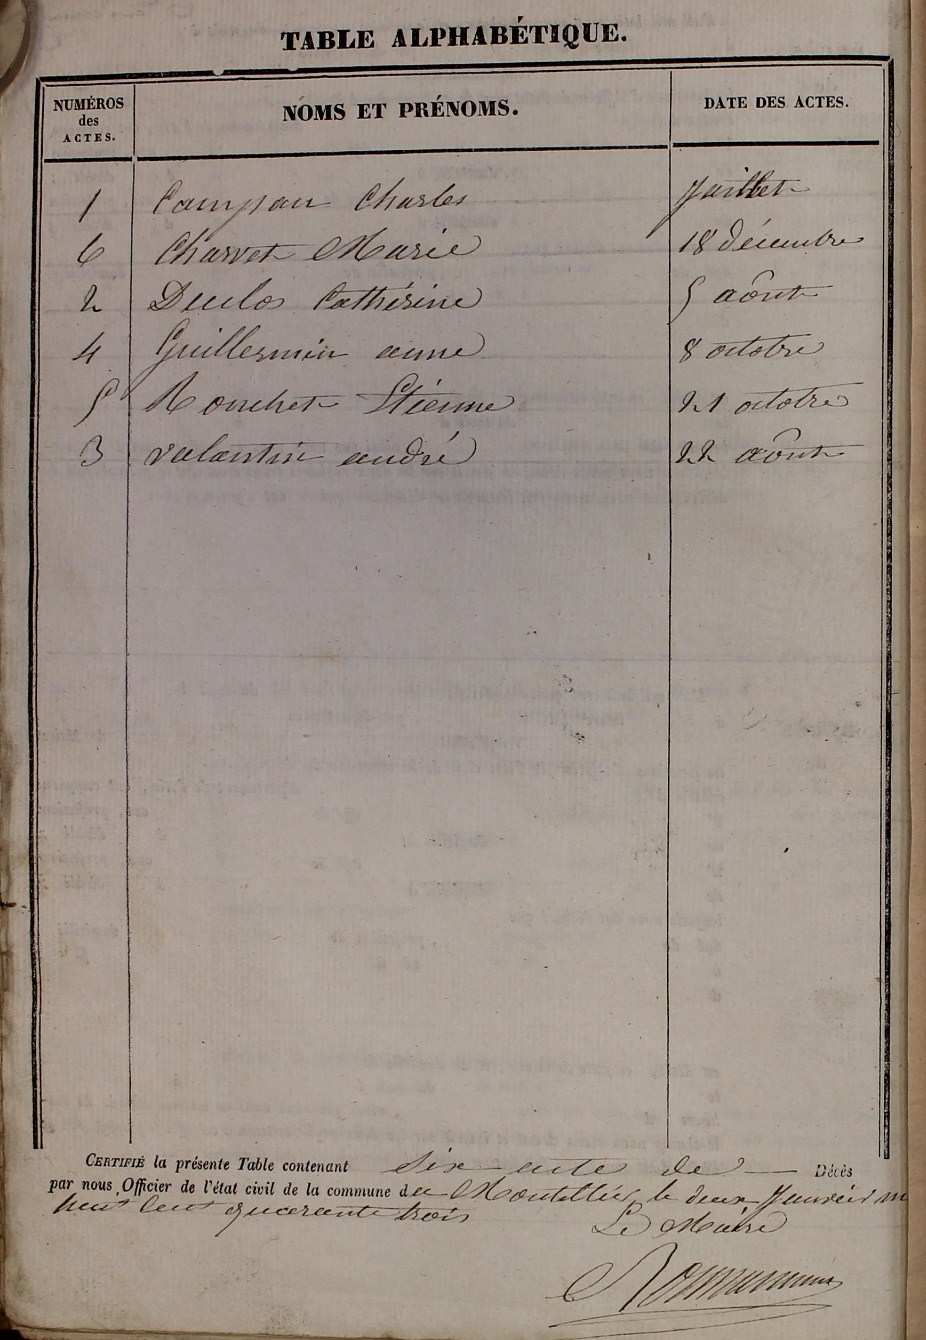 TABLE ALPHABÉTIQUE.
NUMÉROS des ACTES. NOMS ET PRÉNOMS. DATE DES ACTES.
1 Campan Charles Juillet
6 Charvet Marie 18 décembre
2 Duclos Cathérine 5 aôut
4 Guillermin anne 8 octobre
5 Rouchet Etienne 21 octobre
3 valantin andré 22 aôut
CERTIFIÉ la présente Table contenant six acte de Décès
par nous Officier de l'état civil de la commune de Montellier le deux Janvier m
huit Cent quarante trois
Le Maire